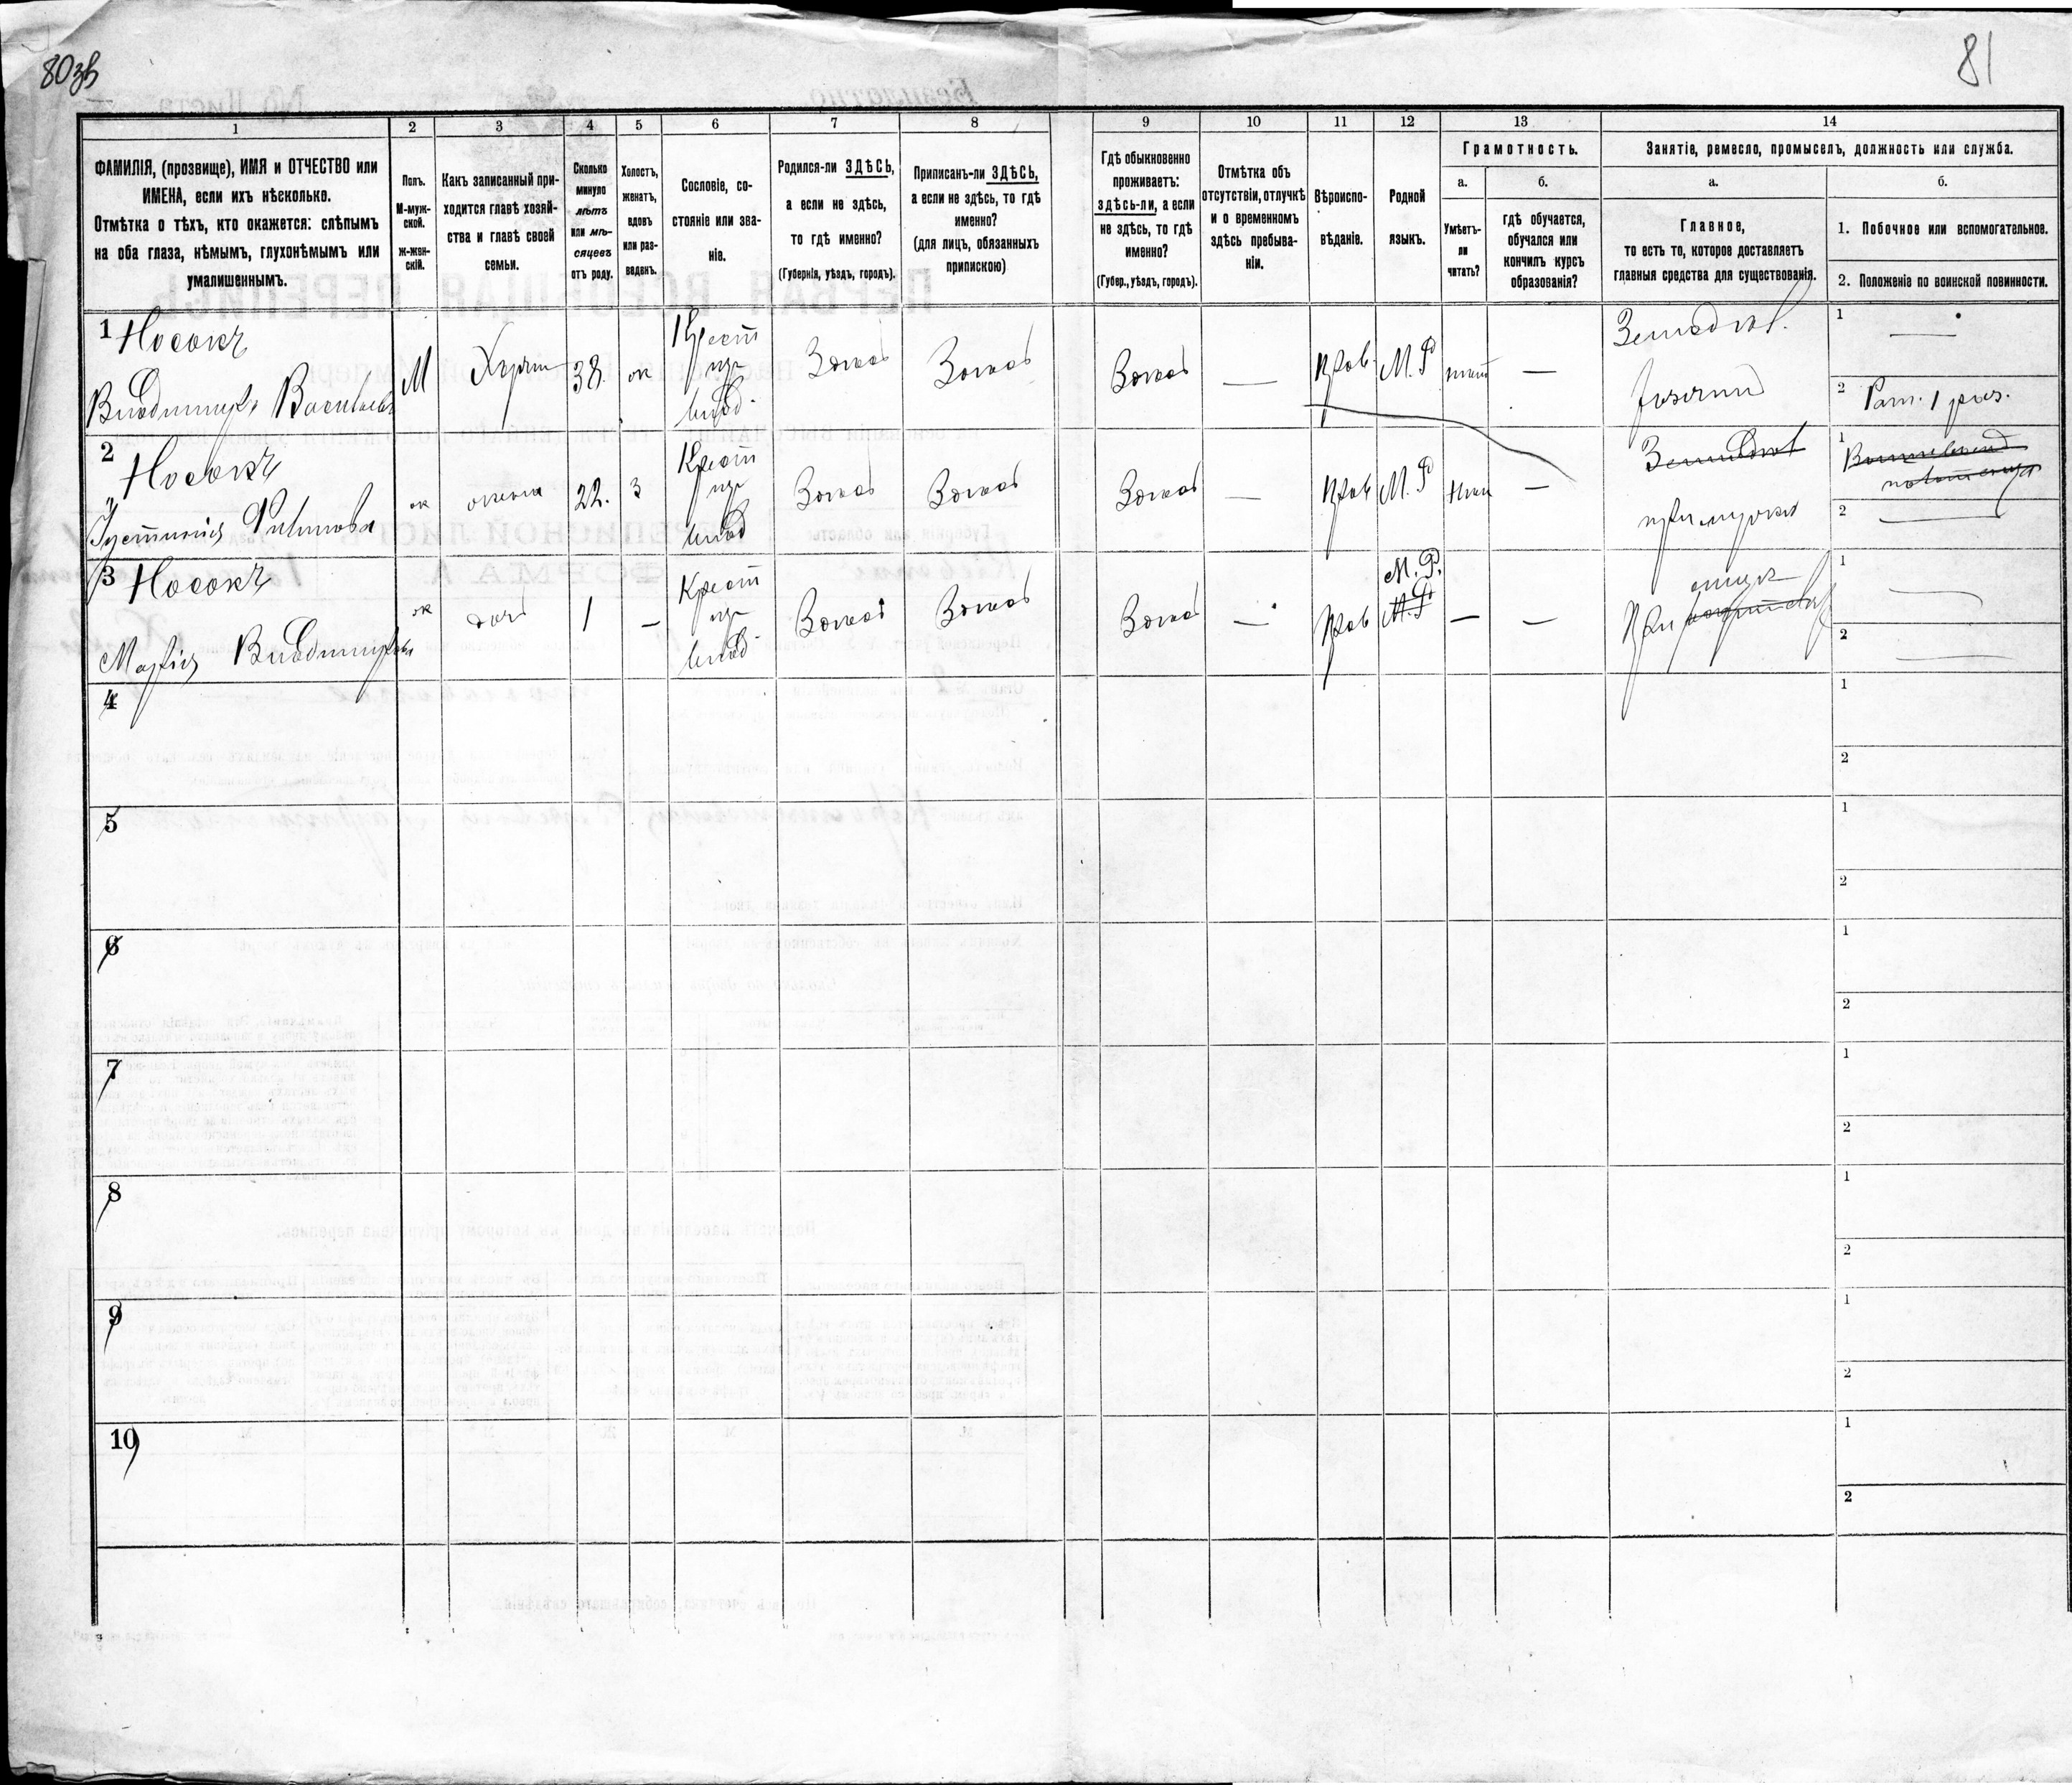 80зв
81
1
2
3
4
5
6
7
8
9
10
11
12
13
14
ФАМИЛІЯ, (прозвище), ИМЯ и ОТЧЕСТВО или
ИМЕНА, если ихъ нѣсколько.
Отмѣтка о тѣхъ, кто окажется: слѣпымъ
на оба глаза, нѣмымъ, глухонѣмымъ или
умалишеннымъ.
Полъ.
М-муж-
ской.
ж-жен-
скій.
Какъ записанный при-
ходится главѣ хозяй-
ства и главѣ своей
семьи.
Сколько
минуло
лѣтъ
или мѣ-
сяцевъ
отъ роду.
Холостъ,
женатъ,
вдовъ
или раз-
веденъ.
Сословіе, со-
стояніе или зва-
ніе.
Родился-ли ЗДѢСЬ,
а если не здѣсь,
то гдѣ именно?
(Губернія, уѣздъ, городъ).
Приписанъ-ли ЗДѢСЬ,
а если не здѣсь, то гдѣ
именно?
(для лицъ, обязанныхъ
припискою)
Гдѣ обыкновенно
проживаетъ:
здѣсь-ли, а если
не здѣсь, то гдѣ
именно?
(Губер., уѣздъ, городъ).
Отмѣтка объ
отсутствіи, отлучкѣ
и о временномъ
здѣсь пребыва-
ніи.
Вѣроиспо-
вѣданіе.
Родной
языкъ.
Грамотность.
а.
Умѣетъ-
ли
читать?
б.
гдѣ обучается,
обучался или
кончилъ курсъ
образованія?
Занятіе, ремесло, промыселъ, должность или служба.
а.
Главное,
то есть то, которое доставляетъ
главныя средства для существованія.
б.
1. Побочное или вспомогательное.
2. Положеніе по воинской повинности.
1 Носокъ
Владиміръ Васильевъ
М
38.
Крест
изъ
влад.
Здѣсь
Здѣсь
Здѣсь
—
Прав
М. Р
—
Землед.
хозяинъ
1 —
2 Рат. 1 раз.
2 Носокъ
Іустинія Филипова
ж
жена
22.
з
Крест
изъ
влад
Здѣсь
Здѣсь
Здѣсь
—
Прав
М. Р
—
Землед
при мужѣ
1
2 —
3 Носокъ
Марія Владимірова
ж
дочь
1
—
Крест
изъ
влад
Здѣсь
Здѣсь
Здѣсь
—
Прав
М. Р.
М. Р
—
—
При отцѣ
1 —
2 —
4
1
2
5
1
2
6
1
2
7
1
2
8
1
2
9
1
2
10
1
2